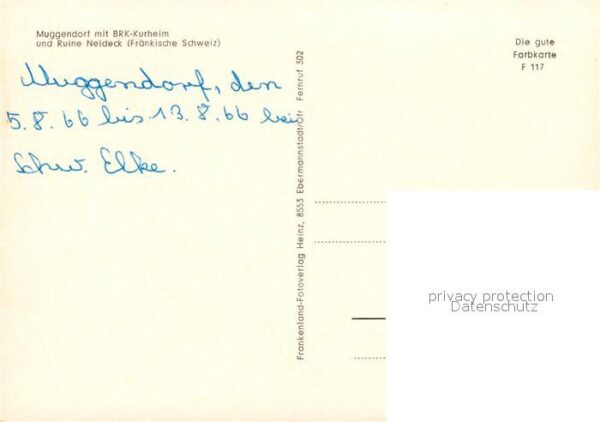 Muggendorf mit BRK-Kurheim
und Ruine Neideck (Fränkische Schweiz)
Muggendorf, den
5.8.66 bis 13.8.66 bei
Schw. Elke.
Frankenland-Fotoverlag Heinz, 8553 Ebermannstadt/Ofr Fernruf 302
Die gute
Farbkarte
F 117
privacy protection
Datenschutz